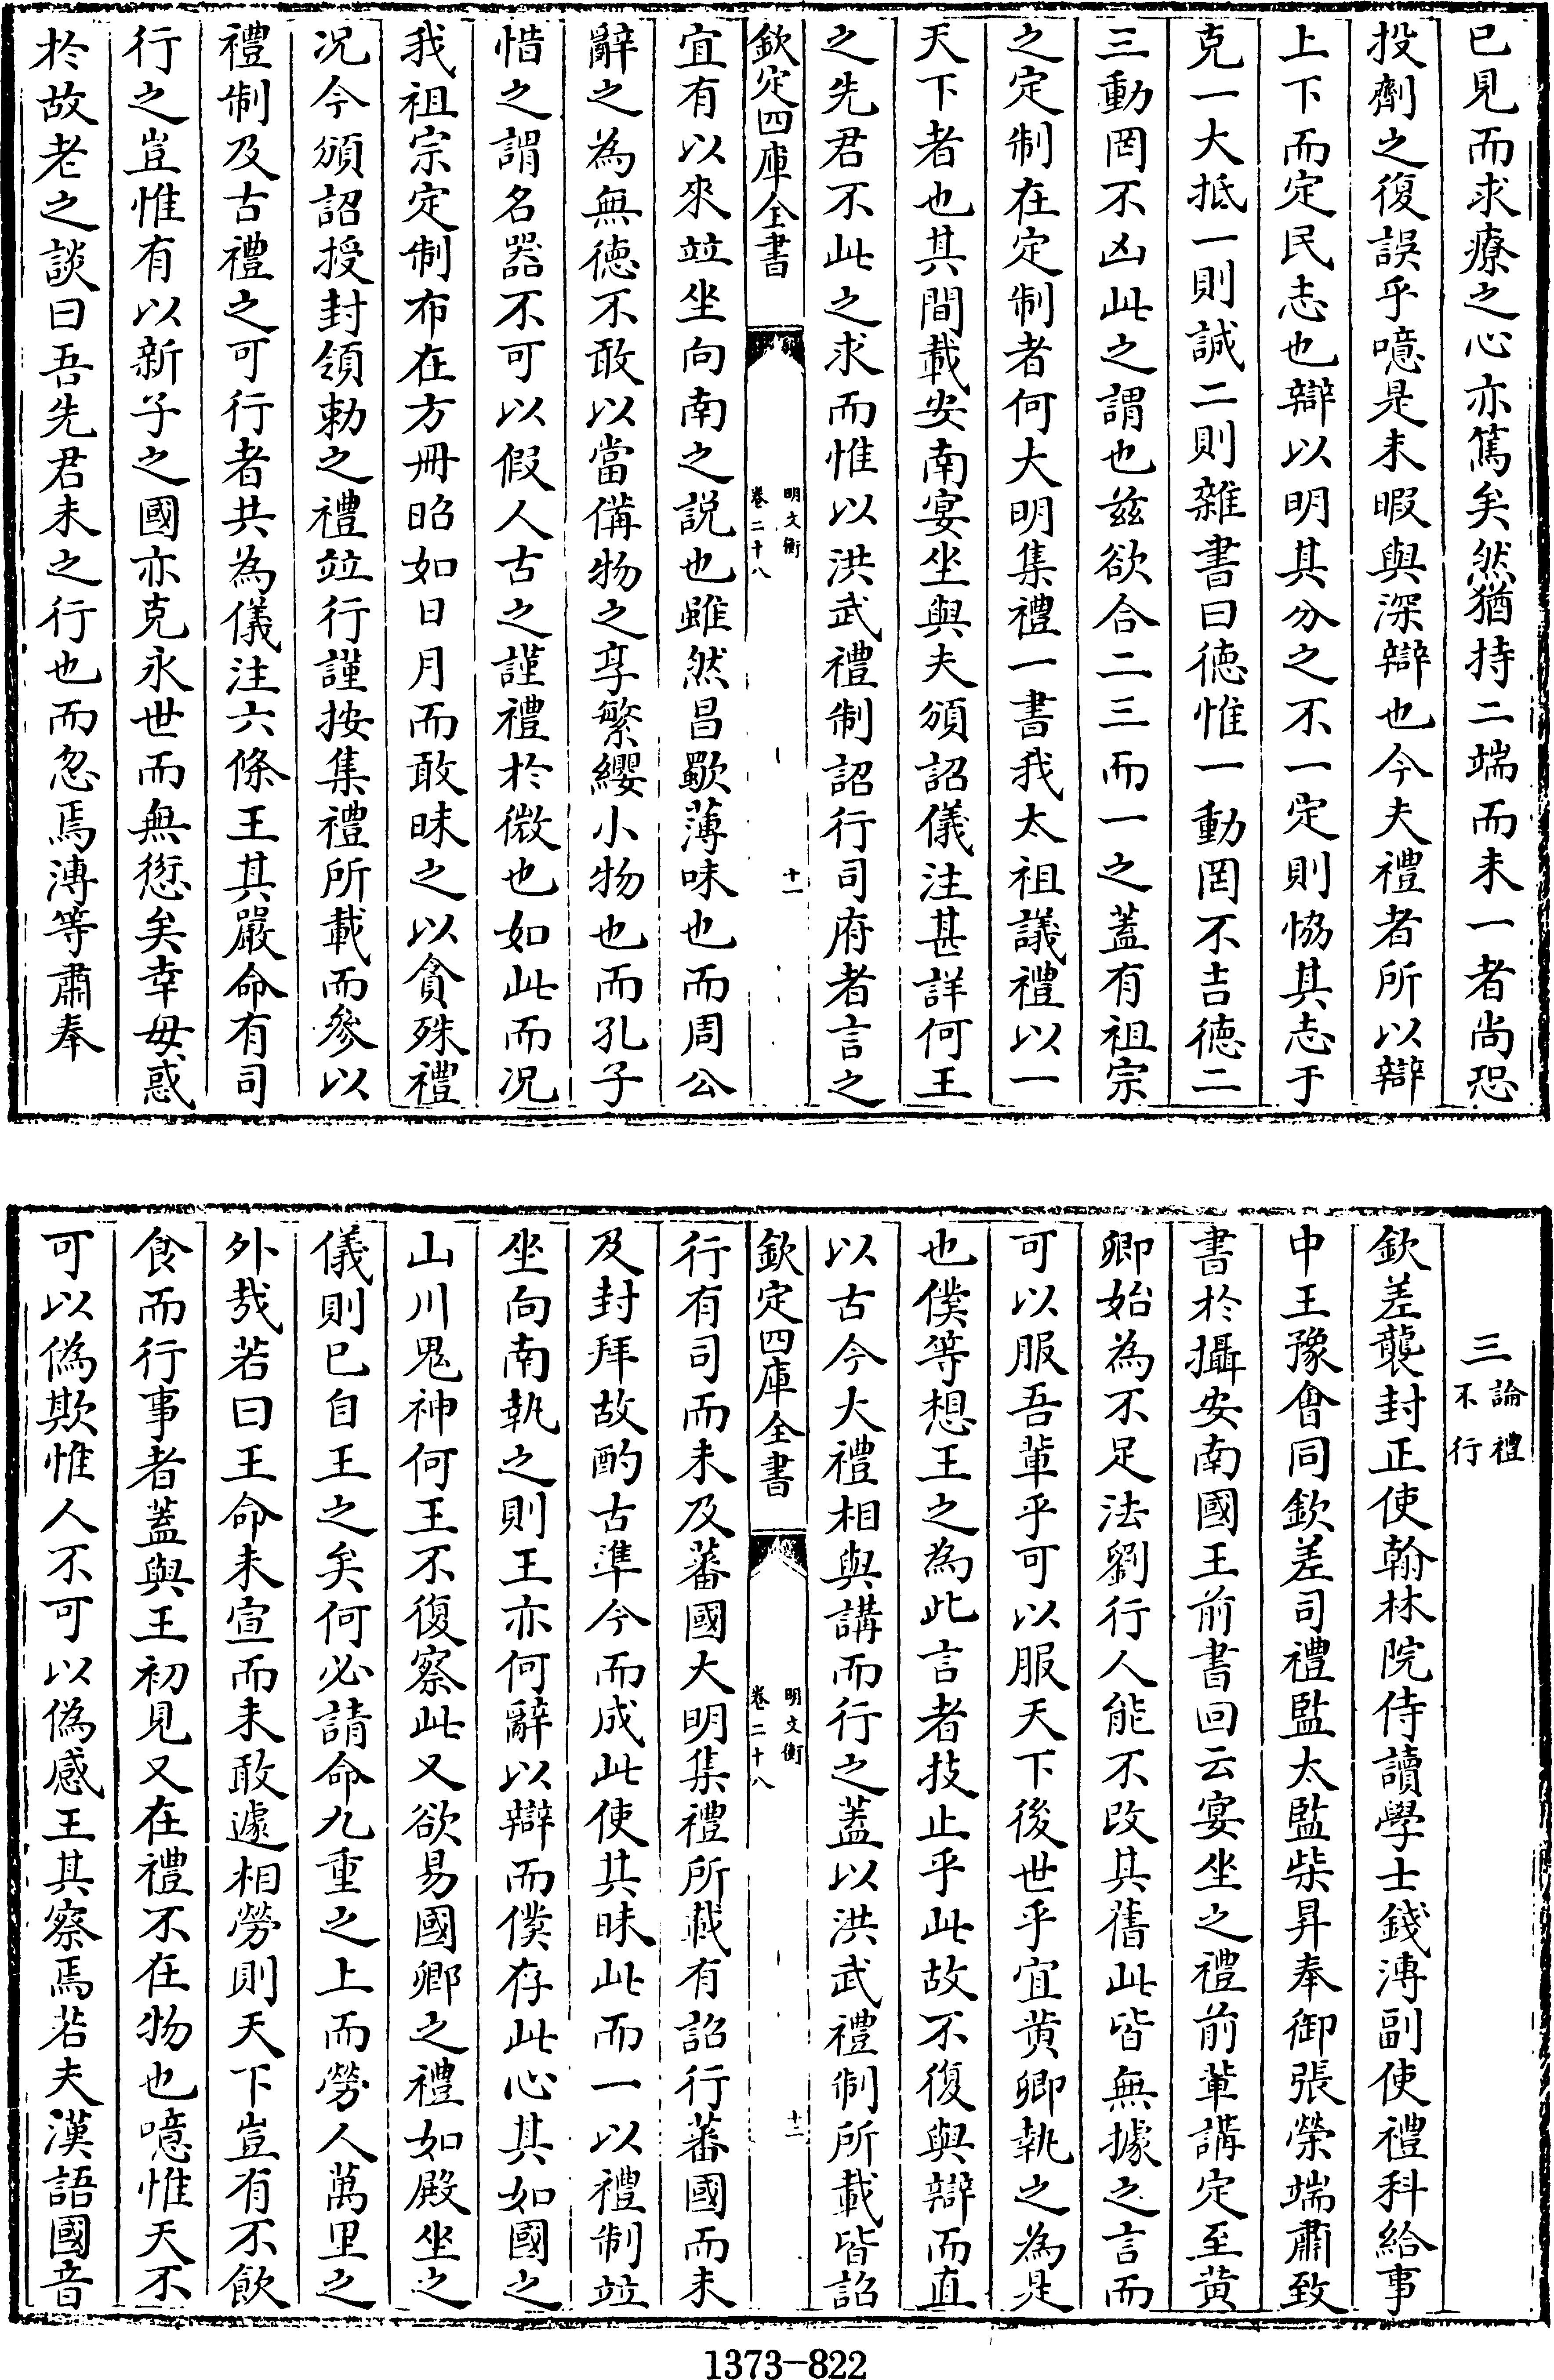 已見而求療之心亦篤矣然猶持二端而未一者尚恐
投劑之復誤乎噫是未暇與深辯也今夫禮者所以辯
上下而定民志也辯以明其分之不一定則協其志于
克一大抵一則誠二則雜書曰德惟一動罔不吉德二
三動罔不凶此之謂也兹欲合二三而一之蓋有祖宗
之定制在定制者何大明集禮一書我太祖議禮以一
天下者也其間載安南宴坐與夫頒詔儀注甚詳何王
之先君不此之求而惟以洪武禮制詔行司府者言之
欽定四庫全書
明文衡
卷二十八
十一
宜有以來竝坐向南之説也雖然昌歜薄味也而周公
辭之為無德不敢以當備物之享繁纓小物也而孔子
惜之謂名器不可以假人古之謹禮於微也如此而况
我祖宗定制布在方冊昭如日月而敢昧之以貪殊禮
况今頒詔授封領勅之禮竝行謹按集禮所載而參以
禮制及古禮之可行者共為儀注六條王其嚴命有司
行之豈惟有以新子之國亦克永世而無愆矣幸毋惑
於故老之談曰吾先君未之行也而忽焉溥等肅奉
三論禮不行
欽差襲封正使翰林院侍讀學士錢溥副使禮科給事
中王豫會同欽差司禮監太監柴昇奉御張榮端肅致
書於攝安南國王前書回云宴坐之禮前輩講定至黄
卿始為不足法劉行人能不改其舊此皆無據之言而
可以服吾輩乎可以服天下後世乎宜黄卿執之為是
也僕等想王之為此言者技止乎此故不復與辯而直
以古今大禮相與講而行之蓋以洪武禮制所載皆詔
欽定四庫全書
明文衡
卷二十八
十二
行有司而未及蕃國大明集禮所載有詔行蕃國而未
及封拜故酌古準今而成此使其昧此而一以禮制竝
坐向南執之則王亦何辭以辯而僕存此心其如國之
山川鬼神何王不復察此又欲易國卿之禮如殿坐之
儀則已自王之矣何必請命九重之上而勞人萬里之
外哉若曰王命未宣而未敢遽相勞則天下豈有不飲
食而行事者蓋與王初見又在禮不在物也噫惟天不
可以偽欺惟人不可以偽感王其察焉若夫漢語國音
1373-822